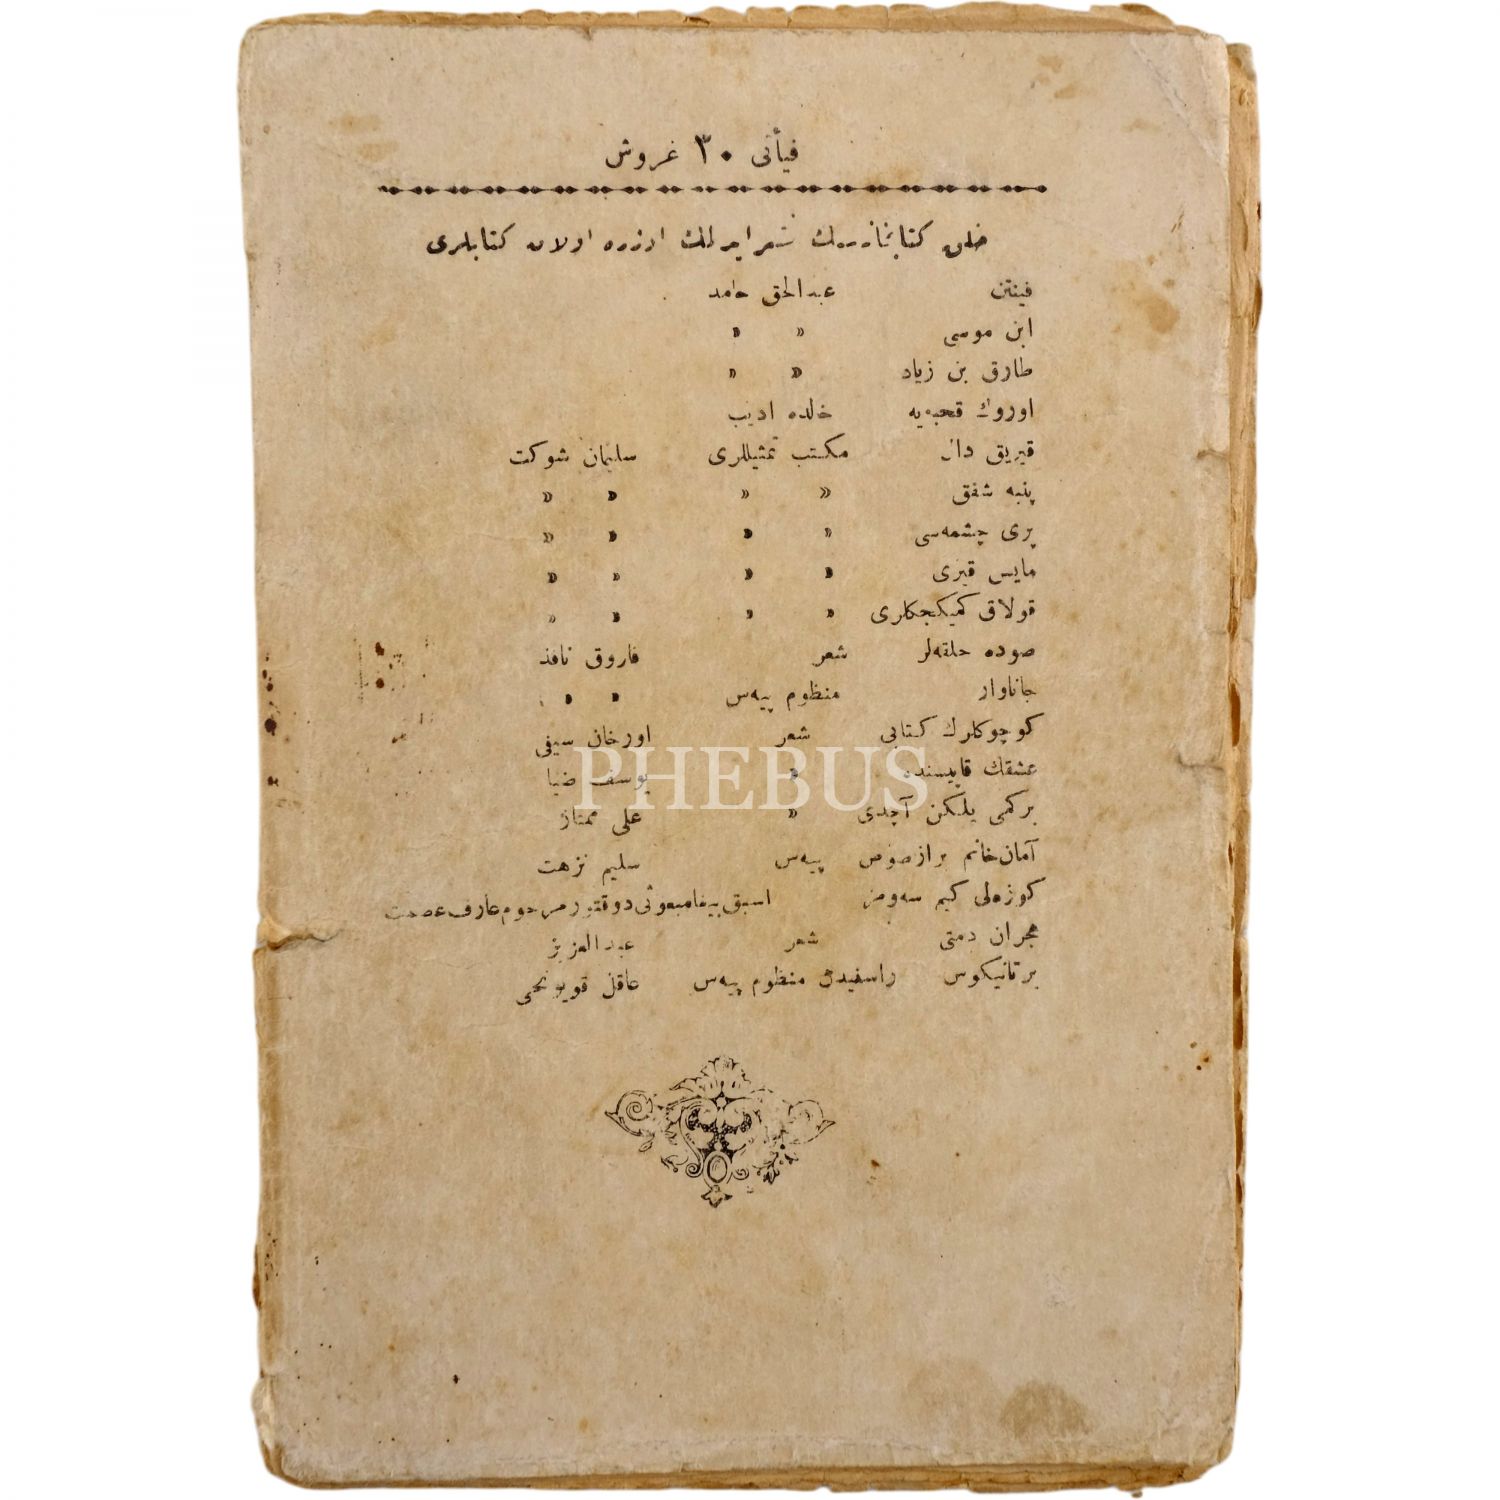 فيأتی ٣٠ غروش
خلق كتابخانه‌سنك نشر ايده‌جك اوزره اولان كتابلری
فينتن عبدالحق حامد
ابن موسی » »
طارق بن زياد » »
اوروك قحبه‌يه خالده اديب
قيريق دال مكتب تمثيللری سليمان شوكت
پنبه شفق » » » »
پری چشمه‌سی » » » »
مايس قيزی » » » »
قولاق كميكجكلری » » » »
صوده حلقه‌لر شعر فاروق نافذ
جاناوار منظوم پيه‌س » »
كوچوكلرك كتابی شعر اورخان سيفی
عشقك قاپيسنده » يوسف ضيا
بركمی يلكن آچدی » علی ممتاز
آمان خانم براز صوص پيه‌س سليم نزهت
كوزه‌لی كيم سه‌ومز اسبق بيغا مبعوثی دوقتور مرحوم عارف عصمت
هجران دمتی شعر عبدالعزيز
برتانيكوس راسيندن منظوم پيه‌س عاقل قويونجی
PHEBUS